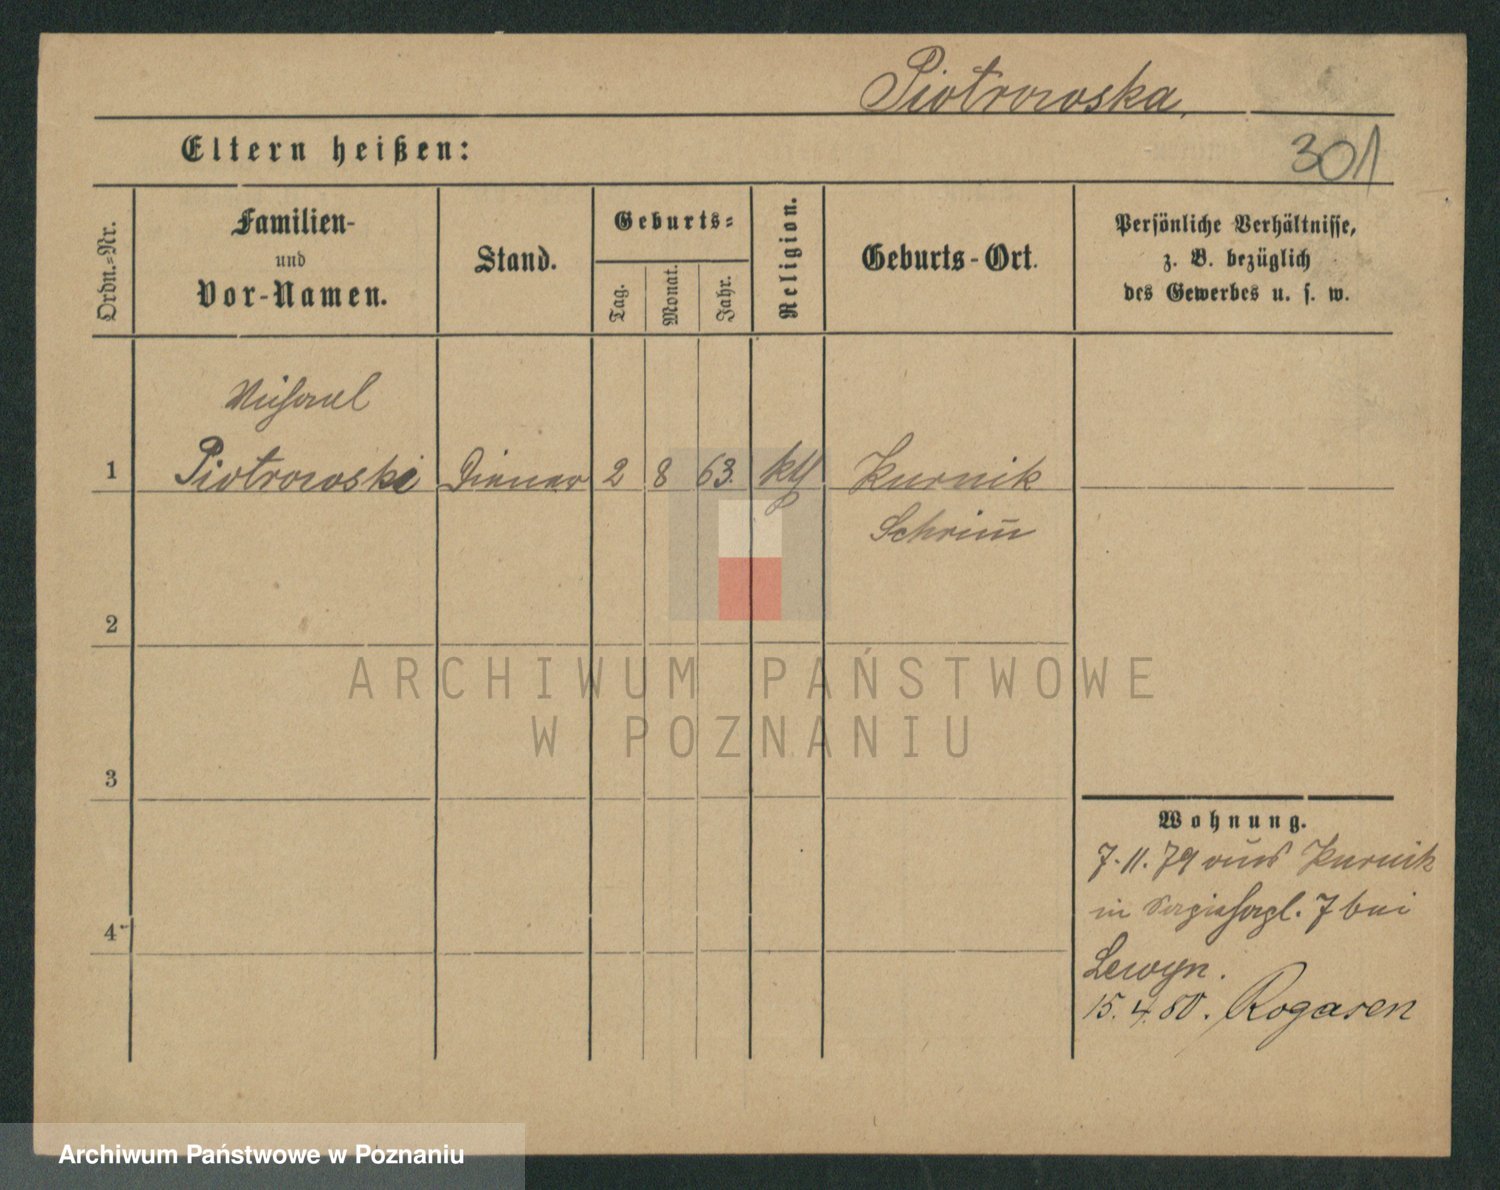 Piotrowska,
Eltern heißen:
301
Ordn.-Nr.
Familien-
und
Vor-Namen.
Stand.
Geburts-
Tag.
Monat.
Jahr.
Religion.
Geburts-Ort.
Persönliche Verhältnisse,
z. B. bezüglich
des Gewerbes u. s. w.
Michael
1 Piotrowski Diener 2 8 63. kth Kurnik
Schrim̄
2
3
4
Wohnung.
7.11.79 aus Kurnik
in 7 bei
Lewyn.
15.4.80. Rogasen
ARCHIWUM PAŃSTWOWE
W POZNANIU
Archiwum Państwowe w Poznaniu